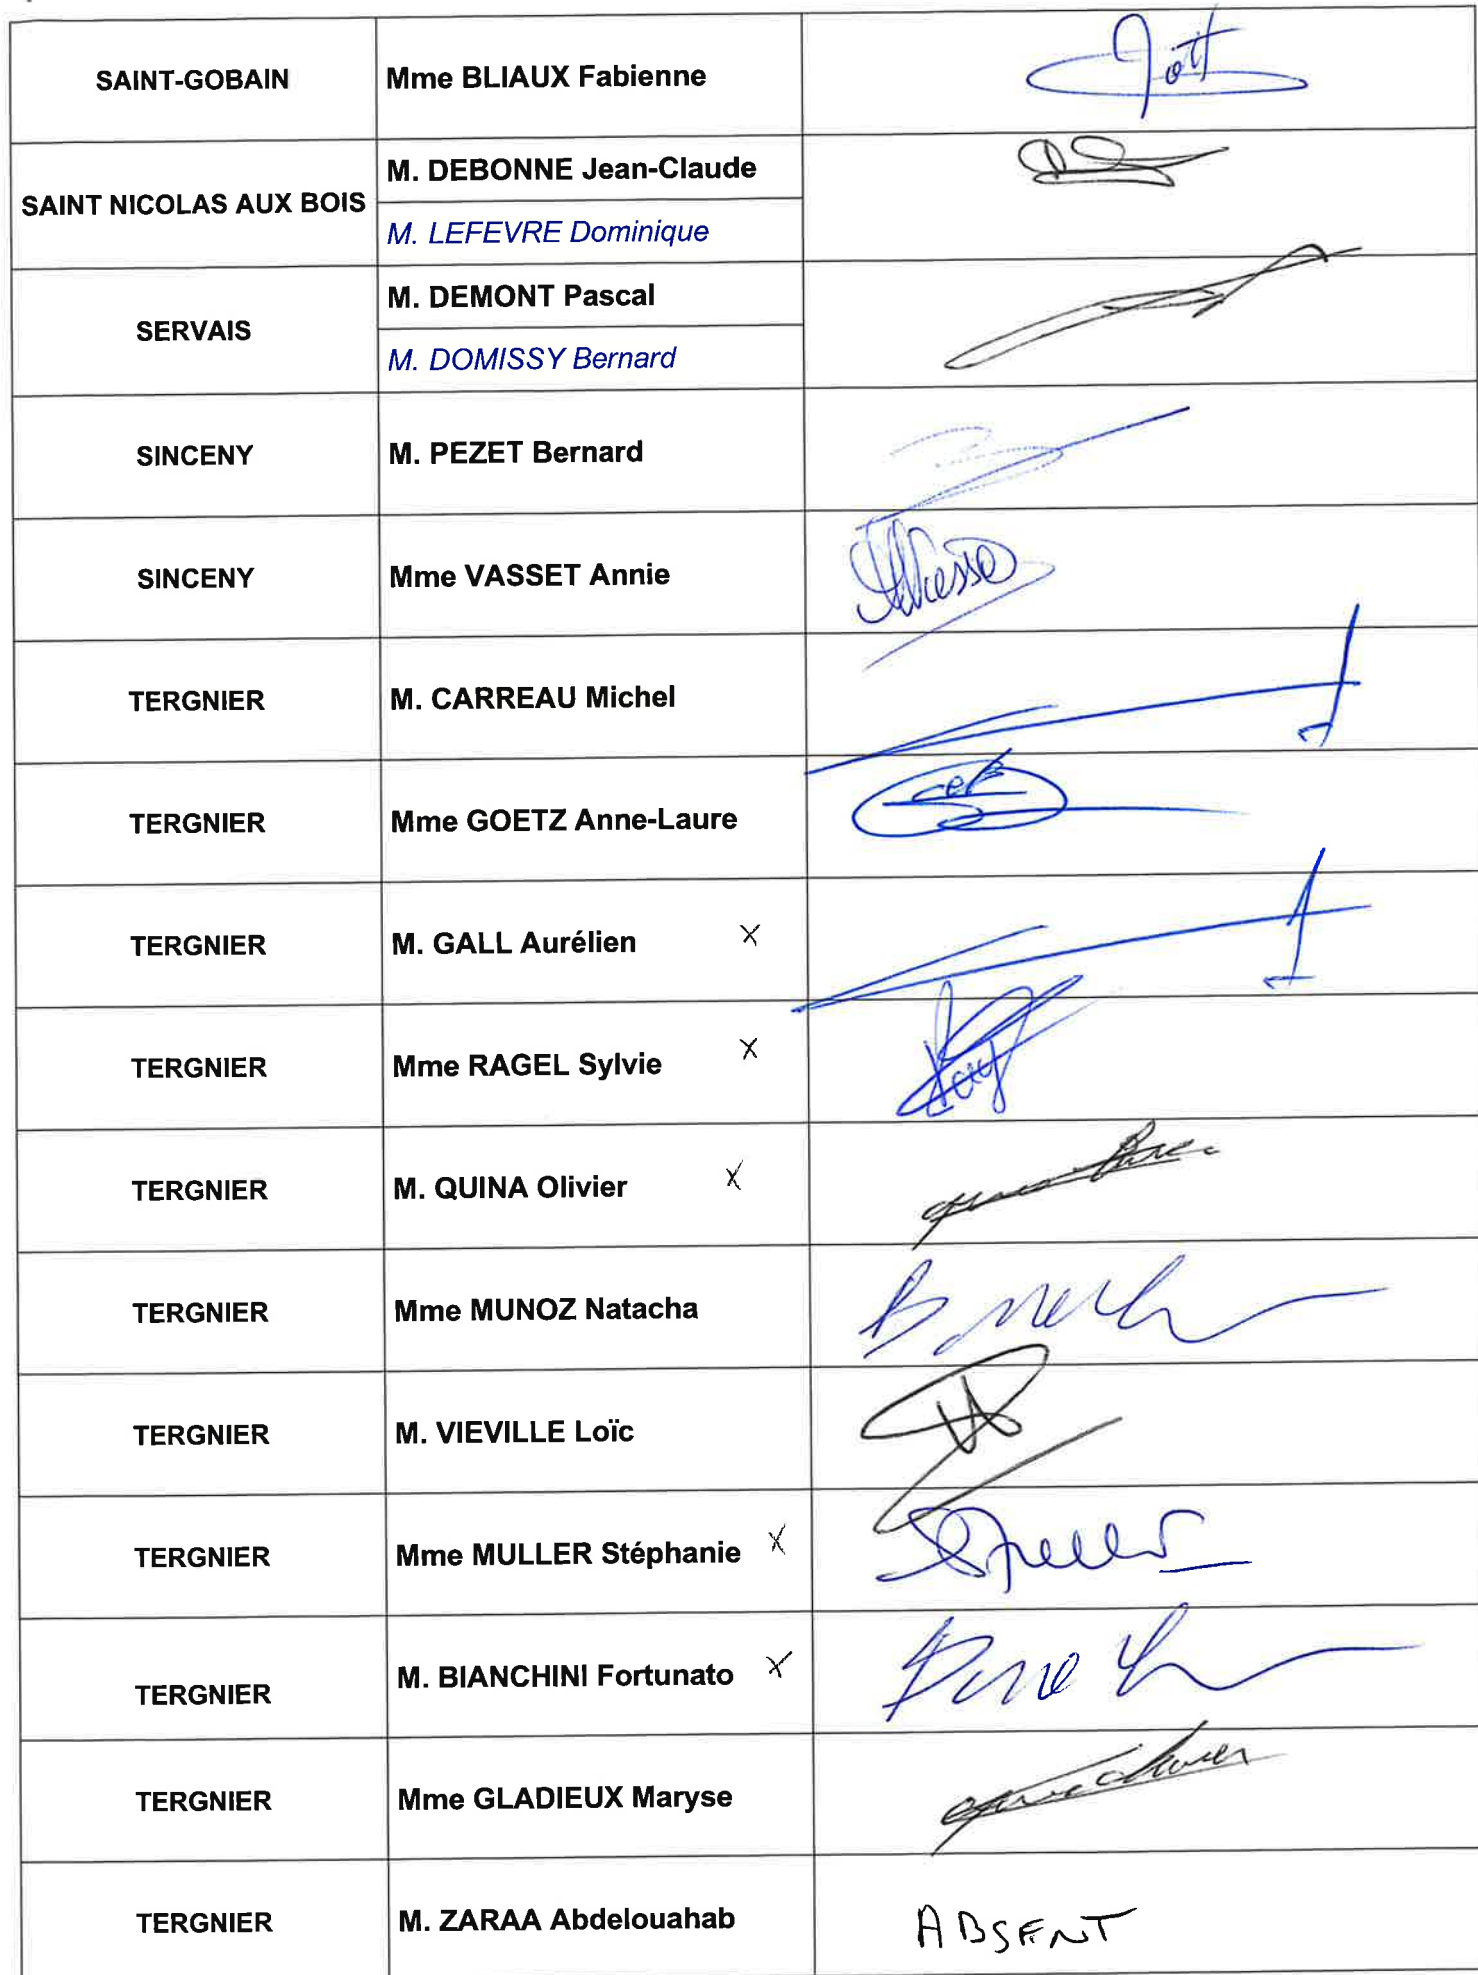 SAINT-GOBAIN Mme BLIAUX Fabienne
SAINT NICOLAS AUX BOIS M. DEBONNE Jean-Claude
M. LEFEVRE Dominique
SERVAIS M. DEMONT Pascal
M. DOMISSY Bernard
SINCENY M. PEZET Bernard
SINCENY Mme VASSET Annie
TERGNIER M. CARREAU Michel
TERGNIER Mme GOETZ Anne-Laure
TERGNIER M. GALL Aurélien X
TERGNIER Mme RAGEL Sylvie X
TERGNIER M. QUINA Olivier X
TERGNIER Mme MUNOZ Natacha
TERGNIER M. VIEVILLE Loïc
TERGNIER Mme MULLER Stéphanie X
TERGNIER M. BIANCHINI Fortunato X
TERGNIER Mme GLADIEUX Maryse
TERGNIER M. ZARAA Abdelouahab ABSENT